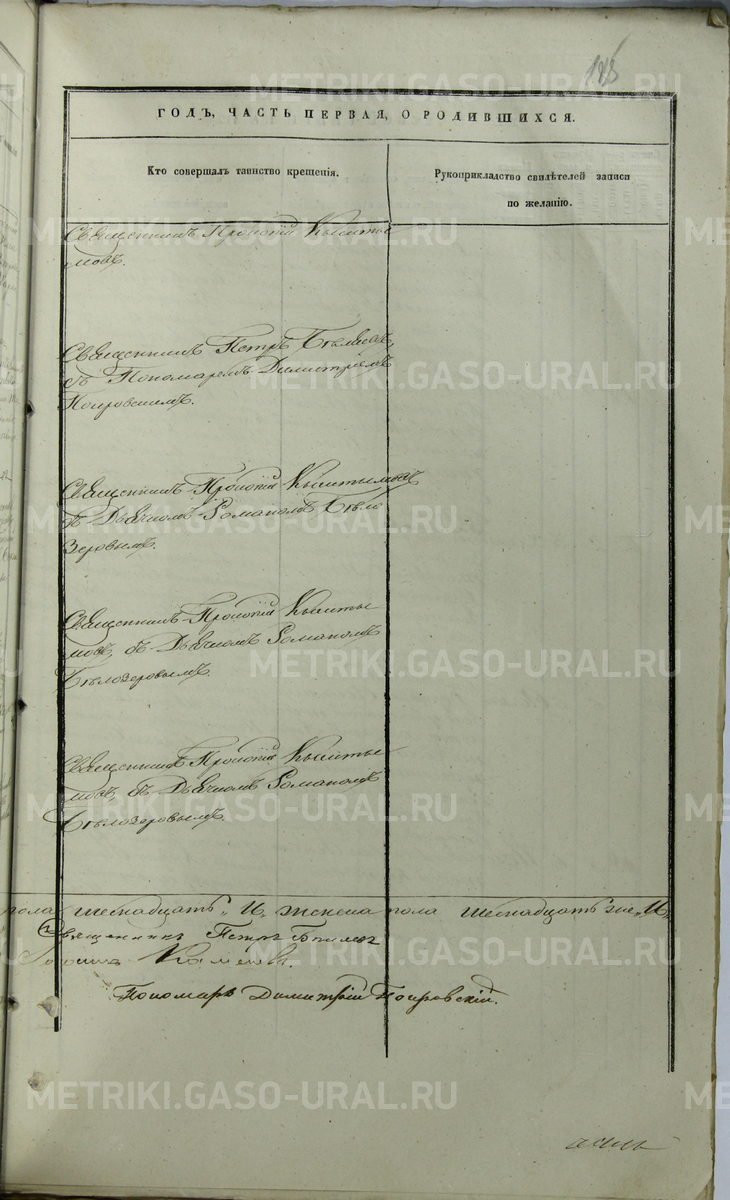 ГОДЪ, ЧАСТЬ ПЕРВАЯ, О РОДИВШИХСЯ.
Кто совершалъ таинство крещенія.
Рукоприкладство свидѣтелей записи
по желанію.
Священникъ Прокопій Кышты
мовъ.
Священникъ Петръ Бѣляевъ,
съ Пономаремъ Димитріемъ
Покровскимъ.
Священникъ Прокопій Кыштымовъ
съ Дьячкомъ Романомъ Бѣло
зеровымъ.
Священникъ Прокопій Кышты
мовъ, съ Дьячкомъ Романомъ
Бѣлозеровымъ.
Священникъ Прокопій Кышты
мовъ, съ Дьячкомъ Романомъ
Бѣлозеровымъ.
пола шестнадцать, И, женска пола шестнадцать же, И,
Священникъ Петръ Бѣляевъ
Пономарь Димитрій Покровскій.
METRIKI.GASO-URAL.RU